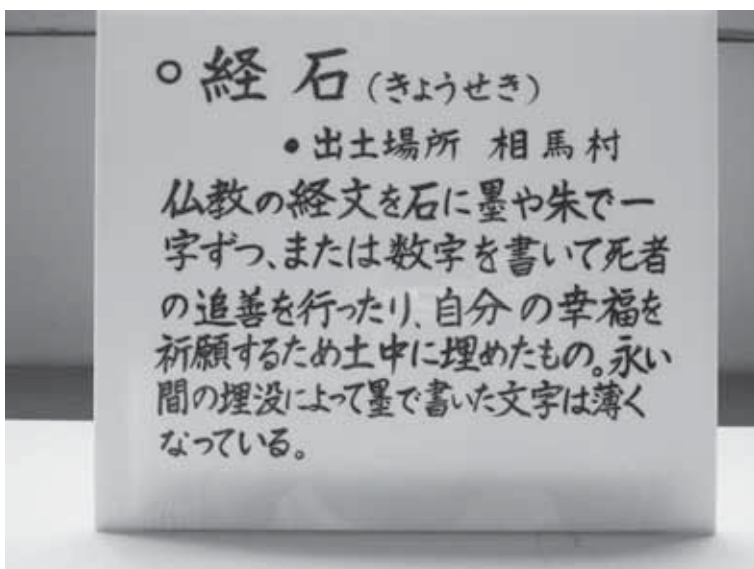 ○経石(きょうせき)
・出土場所 相馬村
仏教の経文を石に墨や朱で一
字ずつ、または数字を書いて死者
の追善を行ったり、自分の幸福を
祈願するため土中に埋めたもの。永い
間の埋没によって墨で書いた文字は薄く
なっている。